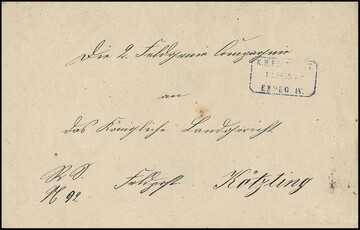 Die 2. Feldgenie Compagnie
EXPED. IV.
an
das Königliche Landgericht
R. S.
Feldpost Kötzling
N 92